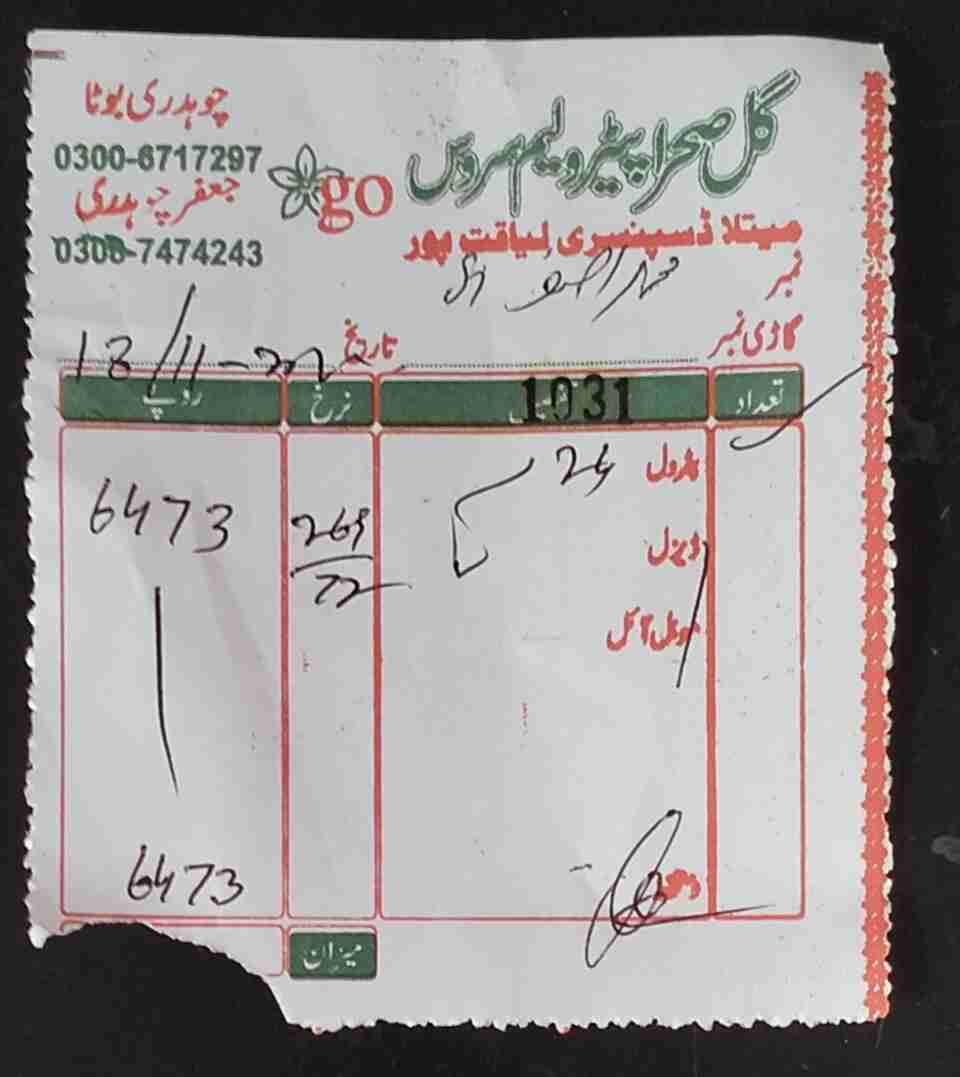 گل صحرا پیٹرولیم سروس
go
چوہدری بوٹا
0300-6717297
جعفر چوہدری
0308-7474243
میتلا ڈسپنسری لیاقت پور
نمبر
گاڑی نمبر
تاریخ 18/11-202
تعداد 1031 نرخ روپے
پٹرول 24
269/72 6473
ڈیزل
موبل آئل
دستخط 6473
میزان